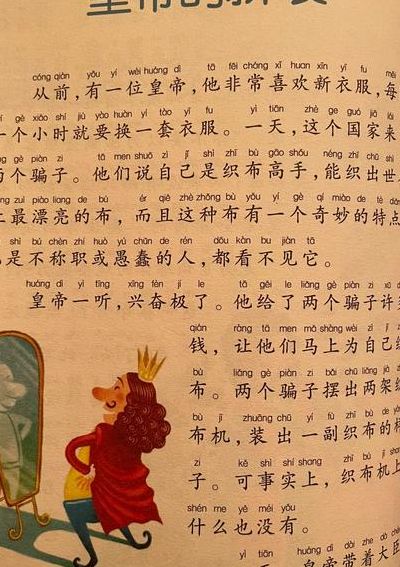 皇帝的新衣
cóng qián yǒu yí wèi huáng dì tā fēi cháng xǐ huan xīn yī fu měi
从前,有一位皇帝,他非常喜欢新衣服,每
gè xiǎo shí jiù yào huàn yí tào yī fu yì tiān zhè ge guó jiā lái
一个小时就要换一套衣服。一天,这个国家来
gè piàn zi tā men shuō zì jǐ shì zhī bù gāo shǒu néng zhī chū shì
个骗子。他们说自己是织布高手,能织出世
zuì piào liang de bù ér qiě zhè zhǒng bù yǒu yí gè qí miào de tè diǎn
上最漂亮的布,而且这种布有一个奇妙的特点
shì bú chèn zhí huò yú chǔn de rén dōu kàn bu jiàn tā
是不称职或愚蠢的人,都看不见它。
huáng dì yì tīng xīng fèn jí le tā gěi le liǎng gè piàn zi xǔ
皇帝一听,兴奋极了。他给了两个骗子许
qián ràng tā men mǎ shàng wèi zì jǐ
钱,让他们马上为自己
bù liǎng gè piàn zi bǎi chū liǎng jià
布。两个骗子摆出两架
bù jī zhuāng chū yí fù zhī bù de yàng
布机,装出一副织布的样
zi kě shì shí shang zhī bù jī shang
子。可事实上,织布机上
shén me yě méi yǒu
什么也没有。
yì tiān huáng dì dài zhe dà chén
一天,皇帝带着大臣